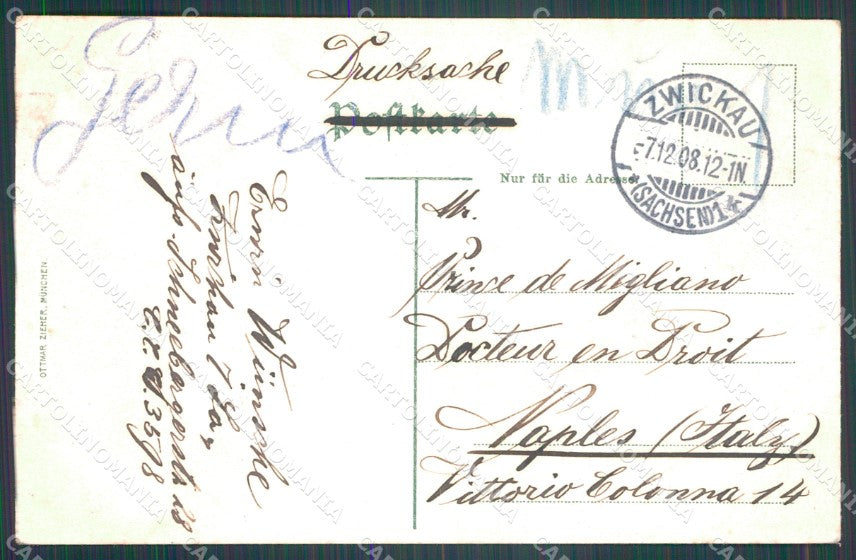 Drucksache
Postkarte
Nur für die Adresse
ZWICKAU
-7.12.08.12-1N.
(SACHSEN)1*
Mr.
Prince de Migliano
Docteur en Droit
Naples (Italy)
Vittorio Colonna 14
Germ
Wünsche
Zwickau i/Sa,
Schneebergerstr 28
OTTMAR ZIEHER, MÜNCHEN.
CARTOLINOMANIA